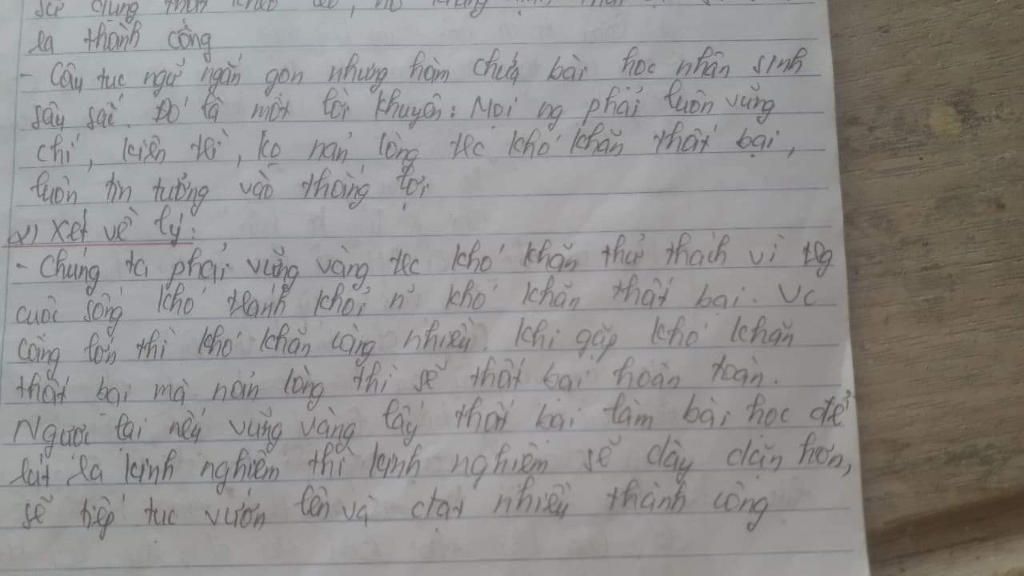 sẽ dũng
ra thành công
- Câu tục ngữ ngắn gọn nhưng hàm chứa bài học nhân sinh
sâu sắc. Đó là một lời khuyên: Mọi ng phải luôn vững
chí, kiên trì, ko nản lòng trc khó khăn thất bại,
luôn tin tưởng vào thắng lợi
xét về lý:
- Chúng ta phải vững vàng trc khó khăn thử thách vì trg
cuộc sống khó tránh khỏi n~ khó khăn thất bại. Vc
càng lớn thì khó khăn càng nhiều. Khi gặp khó khăn
thất bại mà nản lòng thì sẽ thất bại hoàn toàn.
Ngược lại nếu vững vàng lấy thất bại làm bài học để
rút ra kinh nghiệm thì kinh nghiệm sẽ dày dặn hơn,
sẽ tiếp tục vươn lên và đạt nhiều thành công